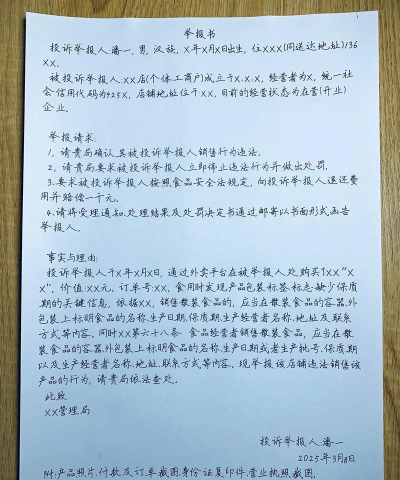 举报书
投诉举报人:潘一,男,汉族,X年X月X日出生,住XXX(同送达地址)136
XX。
被投诉举报人:XX店(个体工商户)成立于X.X.X,经营者为X,统一社
会信用代码为925X,店铺地址位于XX,目前的经营状态为在营(开业)
企业。
举报请求:
1,请贵局确认其被投诉举报人销售行为违法.
2,请贵局要求被投诉举报人立即停止违法行为并做出处罚.
3.要求被投诉举报人按照食品安全法规定,向投诉举报人退还费
用并赔偿一千元.
4.请将受理通知.处理结果及处罚决定书通过邮寄以书面形式函告
举报人.
事实与理由:
投诉举报人于X年X月X日,通过外卖平台在被举报人处购买了XX“X
X”,价值:XX元,订单号:XX,食用时发现产品包装.标签.标志.缺少保质
期的关键信息,依据XX,销售散装食品的,应当在散装食品的容器.外
包装上标明食品的名称.生产日期.保质期.生产经营者名称.地址及联系
方式等内容.同时XX第六十八条 食品经营者销售散装食品,应当在散
装食品的容器.外包装上标明食品的名称.生产日期或者生产批号.保质期
以及生产经营者名称、地址.联系方式等内容.现举报该店铺违法销售该
产品的行为,请贵局依法查处.
此致
XX管理局
投诉举报人:潘一
2025年3月8日
附:产品照片.付款及订单截图.身份证复印件.营业执照截图.